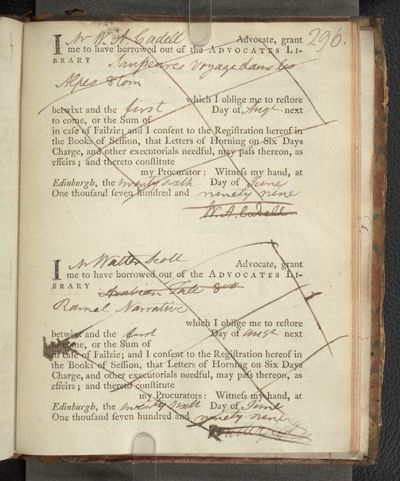 296.
I Mr W. A Cadell Advocate, grant
me to have borrowed out of the ADVOCATES LI-
BRARY Saussures Voyage dans les
Alpes 8 tom
which I oblige me to reſtore
betwixt and the first Day of Augt next
to come, or the Sum of
in caſe of Failzie; and I conſent to the Regiſtration hereof in
the Books of Seſſion, that Letters of Horning on Six Days
Charge, and other executorials needful, may paſs thereon, as
effeirs; and thereto conſtitute
my Procurator: Witneſs my hand, at
Edinburgh, the twenty sixth Day of June
One thouſand ſeven hundred and ninety nine
W. A. Cadell
I Mr Walter Scott Advocate, grant
me to have borrowed out of the ADVOCATES LI-
BRARY Arabian
Ramel Narrative
which I oblige me to reſtore
betwixt and the first Day of Augt next
to come, or the Sum of
in caſe of Failzie; and I conſent to the Regiſtration hereof in
the Books of Seſſion, that Letters of Horning on Six Days
Charge, and other executorials needful, may paſs thereon, as
effeirs; and thereto conſtitute
my Procurators: Witneſs my hand, at
Edinburgh, the twenty sixth Day of June
One thouſand ſeven hundred and ninety nine